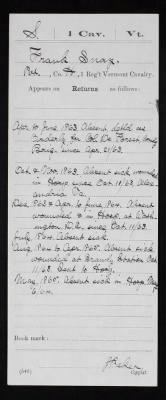 S 1 Cav. Vt.
Frank Snay
Pvt., Co. , 1 Reg't Vermont Cavalry.
Appears on Returns as follows:
Apr to June, 1863. Absent
orderly for Col. De Forest comdg
Brig. since Apr 21/63.
Oct & Nov, 1863. Absent sick wounded
in Hosp since Oct 11/63, Alex-
andria Va.
Dec, 1863 & Apr to June, 1864. Absent
wounded & in Hosp. at Wash-
ington D.C. since Oct. 11/63.
July, 1864. Absent sick.
Aug, 1864 to Apr, 1865. Absent sick
wounded at Brandy Station Oct.
11/63. Sent to Hosp.
May, 1865. Absent sick in Hosp
Book mark:
(546)
Copyist.